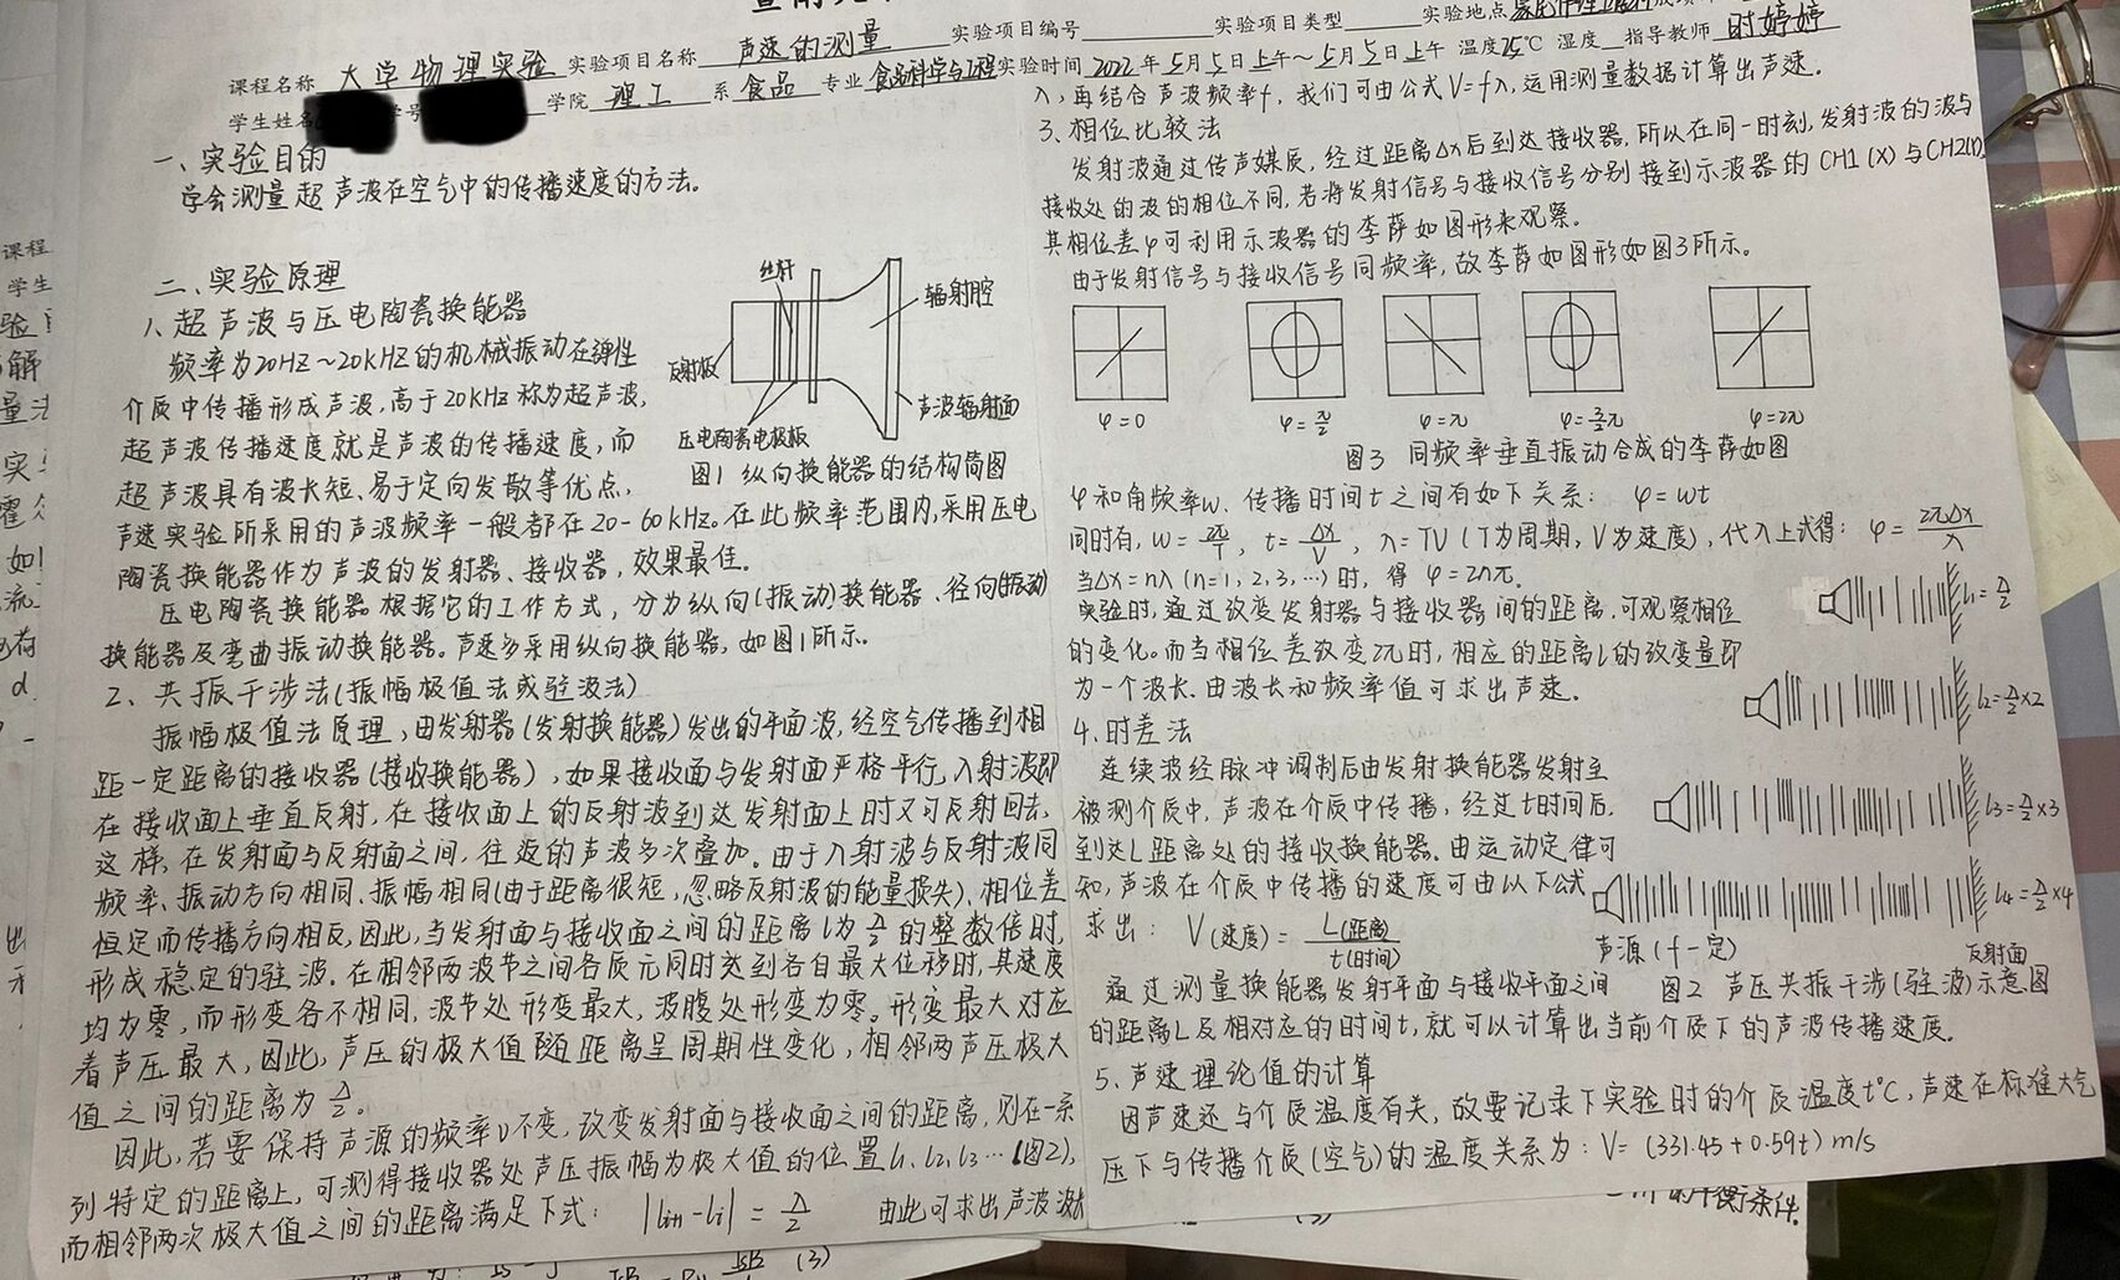 课程名称 大学物理实验 实验项目名称 声速的测量 实验项目编号 实验项目类型 实验地点
学生姓名 学号 学院 理工 系 食品 专业 食品科学与工程 实验时间 2022年5月5日上午～5月5日上午 温度25℃ 湿度 指导教师 时婷婷
一、实验目的
学会测量超声波在空气中的传播速度的方法。
二、实验原理
1、超声波与压电陶瓷换能器
频率为20HZ～20kHZ的机械振动在弹性
介质中传播形成声波,高于20kHz称为超声波,
超声波传播速度就是声波的传播速度,而
超声波具有波长短、易于定向发散等优点,
声速实验所采用的声波频率一般都在20-60kHz。在此频率范围内,采用压电
陶瓷换能器作为声波的发射器、接收器,效果最佳。
丝杆
辐射腔
反射板
声波辐射面
压电陶瓷电极板
图1 纵向换能器的结构简图
压电陶瓷换能器根据它的工作方式,分为纵向(振动)换能器、径向(振动)
换能器及弯曲振动换能器。声速多采用纵向换能器,如图1所示。
2、共振干涉法(振幅极值法或驻波法)
振幅极值法原理,由发射器(发射换能器)发出的平面波,经空气传播到相
距一定距离的接收器(接收换能器),如果接收面与发射面严格平行,入射波即
在接收面上垂直反射,在接收面上的反射波到达发射面上时又可反射回去,
这样,在发射面与反射面之间,往返的声波多次叠加。由于入射波与反射波同
频率、振动方向相同、振幅相同(由于距离很短,忽略反射波的能量损失)、相位差
恒定而传播方向相反,因此,当发射面与接收面之间的距离l为λ/2的整数倍时,
形成稳定的驻波。在相邻两波节之间各质元同时达到各自最大位移时,其速度
均为零,而形变各不相同,波节处形变最大,波腹处形变为零。形变最大对应
着声压最大,因此,声压的极大值随距离呈周期性变化,相邻两声压极大
值之间的距离为λ/2。
因此,若要保持声源的频率ν不变,改变发射面与接收面之间的距离,则在一系
列特定的距离上,可测得接收器处声压振幅为极大值的位置l1、l2、l3…(图2),
而相邻两次极大值之间的距离满足下式: |li+1-li|=λ/2 由此可求出声波波长
λ,再结合声波频率f,我们可由公式V=fλ,运用测量数据计算出声速.
3、相位比较法
发射波通过传声媒质,经过距离Δx后到达接收器,所以在同一时刻,发射波的波与
接收处的波的相位不同,若将发射信号与接收信号分别接到示波器的CH1(X)与CH2(Y)
其相位差φ可利用示波器的李萨如图形来观察。
由于发射信号与接收信号同频率,故李萨如图形如图3所示。
φ=0 φ=π/2 φ=π φ=3/2π φ=2π
图3 同频率垂直振动合成的李萨如图
φ和角频率w、传播时间t之间有如下关系: φ=wt
同时有, w=2π/T, t=Δx/V, λ=TV(T为周期,V为速度),代入上式得: φ=2πΔx/λ
当Δx=nλ(n=1,2,3,…)时,得 φ=2nπ.
实验时,通过改变发射器与接收器间的距离,可观察相位
的变化。而当相位差改变2π时,相应的距离l的改变量即
为一个波长.由波长和频率值可求出声速.
4、时差法
连续波经脉冲调制后由发射换能器发射至
被测介质中,声波在介质中传播,经过t时间后,
到达L距离处的接收换能器.由运动定律可
知,声波在介质中传播的速度可由以下公式
求出: V(速度)=L(距离)/t(时间)
l1=λ/2
l2=λ/2×2
l3=λ/2×3
l4=λ/2×4
声源(f一定) 反射面
图2 声压共振干涉(驻波)示意图
通过测量换能器发射平面与接收平面之间
的距离L及相对应的时间t,就可以计算出当前介质下的声波传播速度.
5、声速理论值的计算
因声速还与介质温度有关,故要记录下实验时的介质温度t℃,声速在标准大气
压下与传播介质(空气)的温度关系为: V=(331.45+0.59t)m/s
衡条件.
(3)